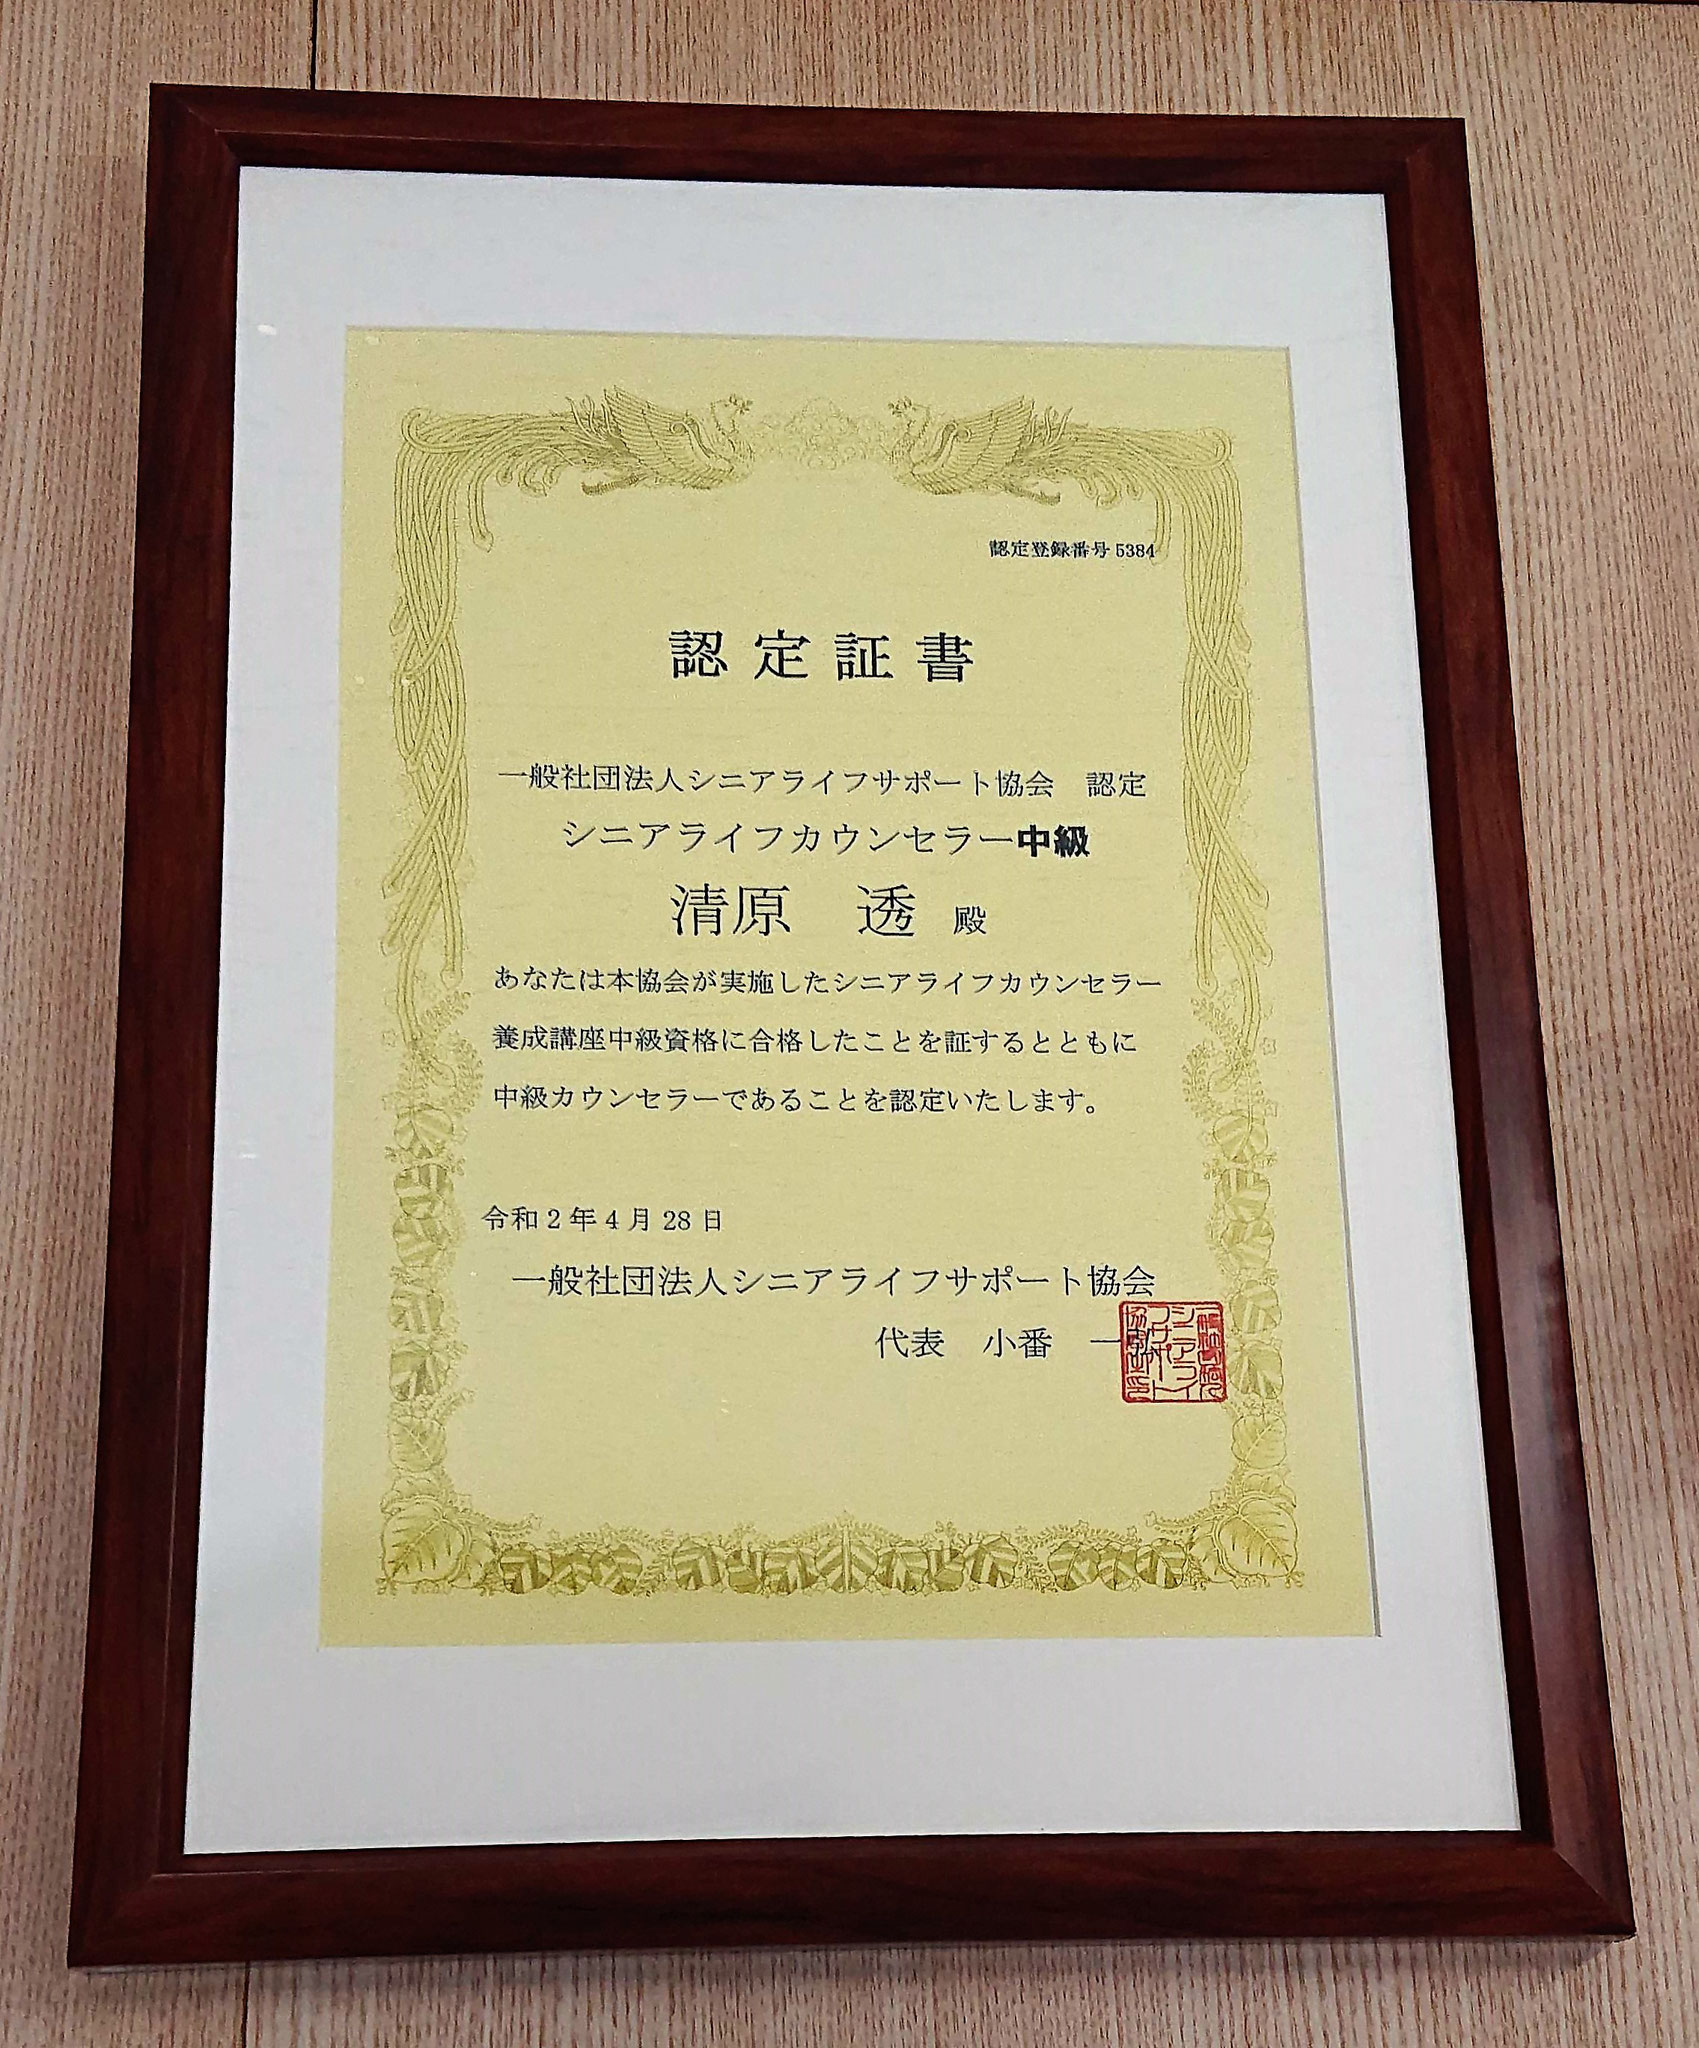 認定登録番号5384
認定証書
一般社団法人シニアライフサポート協会　認定
シニアライフカウンセラー中級
清原　透　殿
あなたは本協会が実施したシニアライフカウンセラー
養成講座中級資格に合格したことを証するとともに
中級カウンセラーであることを認定いたします。
令和2年4月28日
一般社団法人シニアライフサポート協会
代表　小番　一